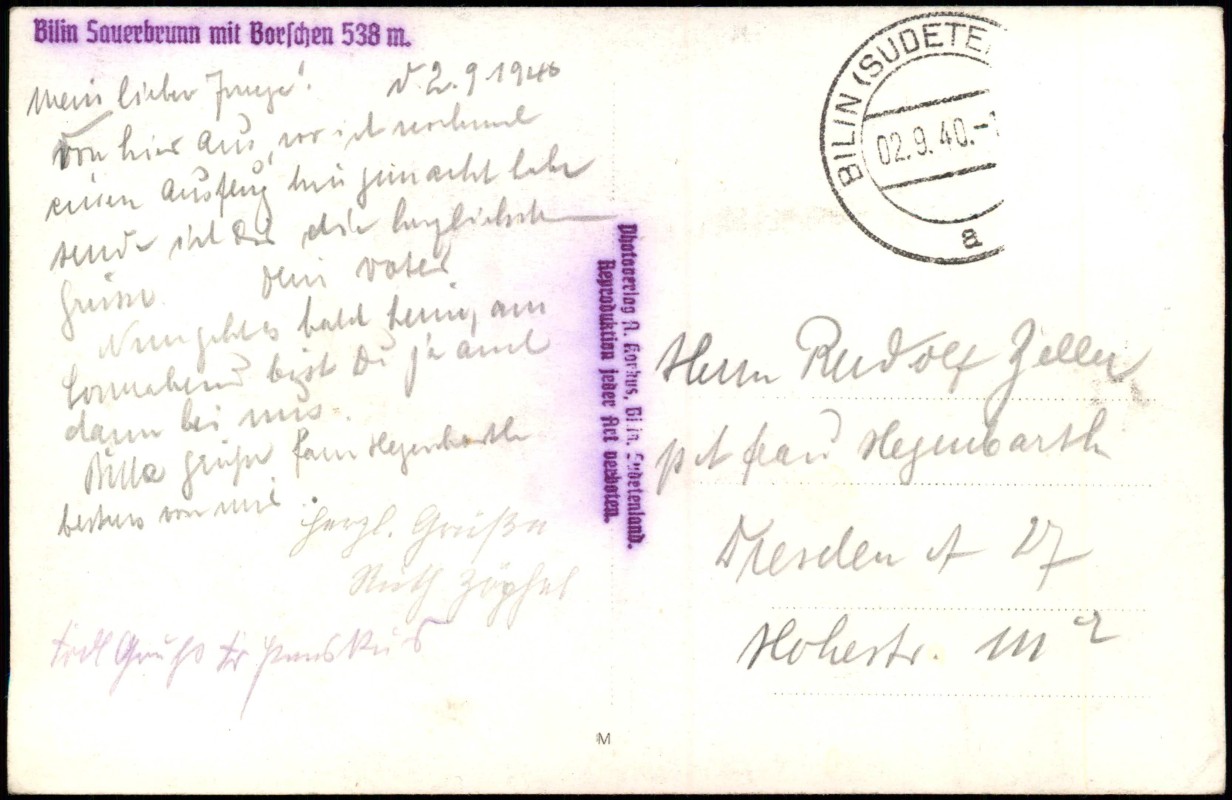 Bilin Sauerbrunn mit Borschen 538 m.
Mein lieber Junge! d 2.9 1940
Von hier aus, wo ich nochmal
einen Ausflug hin gemacht habe
sende ich Dir die herzlichsten
Grüsse. Dein Vater
Nun geht es bald heim, am
Sonnabend bist Du ja auch
dann bei uns.
Bitte grüße Frau Hegenbarth
bestens von mir.
Herzl. Grüße
Ruth Zöphel
BILIN (SUDETE
02.9.40.-1
a
Photoverlag A. Korkus, Bilin, Sudetenland.
Reproduktion jeder Art verboten.
Herrn Rudolf Ziller
pt frau Hegenbarth
Dresden A 27
Hohestr.
M